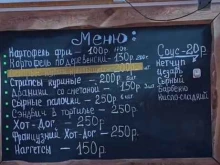 Меню:
Картофель фри - 100р
Картофель по деревенски - 130р
Стрипсы куриные - 200р
Драники со сметаной - 150р
Сырные палочки - 250р
Сэндвич в тортилье - 250р
Хот-Дог - 250р
Французский Хот-Дог - 250р
Наггетсы - 150р
Соус-20р
Кетчуп
Цезарь
Сырный
Барбекю
Кисло-сладкий